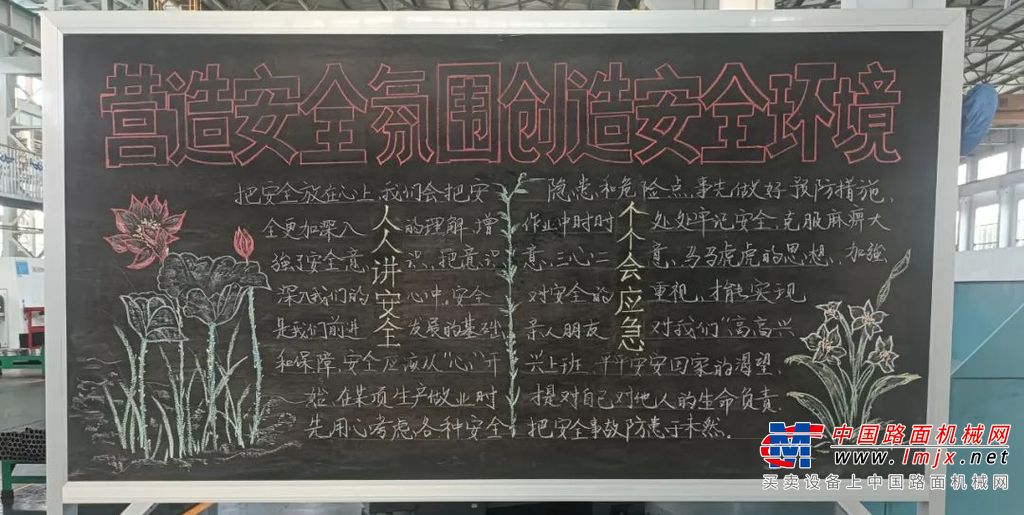 营造安全氛围创造安全环境
人人讲安全
把安全放在心上,我们会把安
全更加深入的理解,增
强了安全意识,把意识
深入我们的心中,安全
是我们前进发展的基础
和保障,安全应该从“心”开
始,在某项生产做业时
先用心考虑各种安全
个个会应急
隐患和危险点,事先做好预防措施,
作业中时时处处牢记安全,克服麻痹大
意,三心二意,马马虎虎的思想,加强
对安全的重视,才能实现
亲人朋友对我们“高高兴
兴上班,平平安安回家的渴望,
提对自己对他人的生命负责
把安全事故防患于未然。
中国路面机械网
www.lmjx.net
买卖设备上中国路面机械网